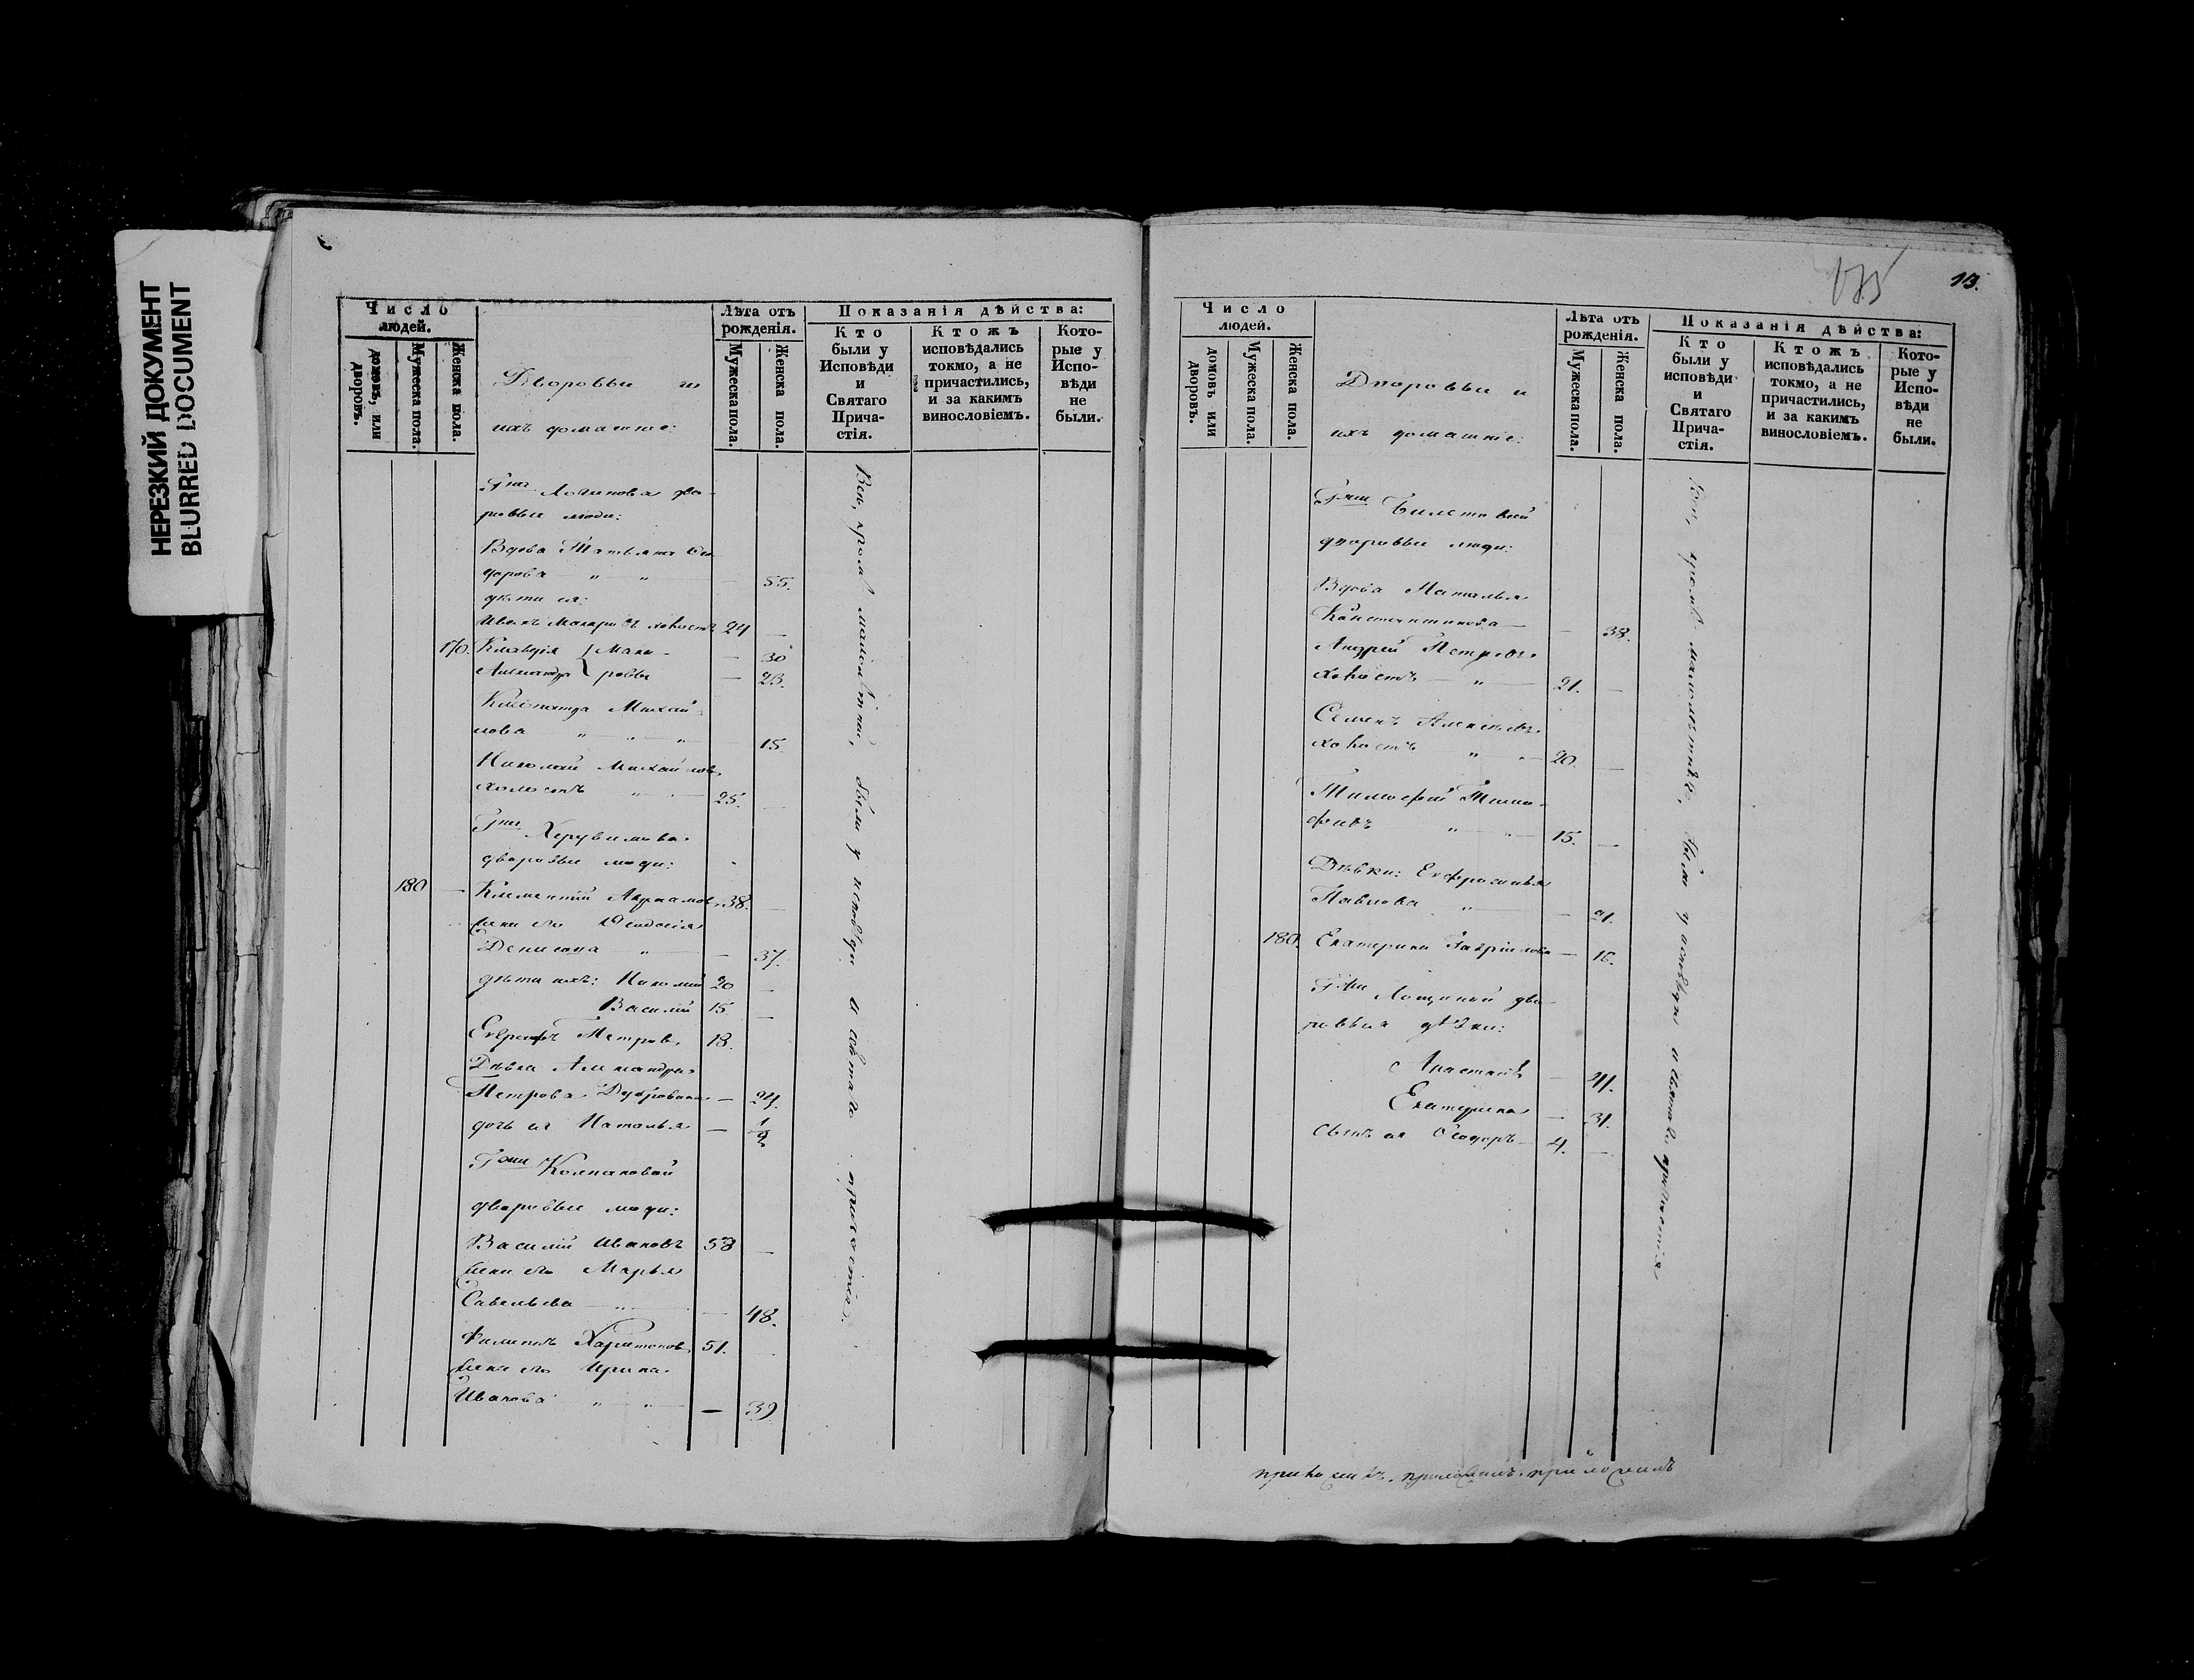 НЕРЕЗКИЙ ДОКУМЕНТ
BLURRED DOCUMENT
Число людей.
домовъ, или дворовъ.
Мужеска пола.
Женска пола.
Дворовыи и
ихъ домашніе:
Лѣта отъ рожденія.
Мужеска пола.
Женска пола.
Показанія дѣйства:
Кто были у Исповѣди и Святаго Причастія.
Ктожъ исповѣдались токмо, а не причастились, и за какимъ винословіемъ.
Которые у Исповѣди не были.
Гна Логинова дво-
ровыи люди:
Вдова Татьяна Си
дорова — " — " — 55.
дѣти ея:
Иванъ Макаровъ холостъ 24 —
170. Клавдія { Мака- — 30
Александра { ровы — 23.
Клеопатра Михай-
лова " — " — " — 15.
Николай Михайловъ
холостъ " — 25. —
Гна Херувимова
дворовыи люди:
180 — Климентій Авраамовъ 38. —
жена его Ѳеодосія
Денисова — " — — 37.
дѣти ихъ: Николай 20 —
Василій 15. —
Евграфъ Петровъ 18.
Дѣвка Александра
Петрова — 24.
дочь ея Наталья — 1/2
Гжи Колпаковой
дворовыи люди:
Василій Ивановъ 58 —
жена его Марья
Савельева — " — 48.
Филиппъ Харитоновъ 51.
жена его Ирина
Иванова " — " — — 39.
Всѣ, кромѣ малолѣтныхъ, были у исповѣди и святаго причастія.
175
13.
Число людей.
домовъ или дворовъ.
Мужеска пола.
Женска пола.
Дворовыи и
ихъ домашніе:
Лѣта отъ рожденія.
Мужеска пола.
Женска пола.
Показанія дѣйства:
Кто были у исповѣди и Святаго Причастія.
Ктожъ исповѣдались токмо, а не причастились, и за какимъ винословіемъ.
Которые у Исповѣди не были.
Гжи
дворовыи люди:
Вдова Наталья
Константинова — — 38.
Андрей Петровъ
холостъ — " — 21. —
Семенъ Алексѣевъ
холостъ " — 20. —
Тимофей Тимо-
феевъ " — 15. —
Дѣвки: Евфросинья
Павлова " — — 21.
180. Екатерина Гавриілова — 16.
Гжи Лощиной дво-
ровыя дѣвки:
Анастасія — 41.
Екатерина — 31.
Сынъ ея Ѳеодоръ — 4. —
Всѣ, кромѣ малолѣтныхъ, были у исповѣди и святаго причастія